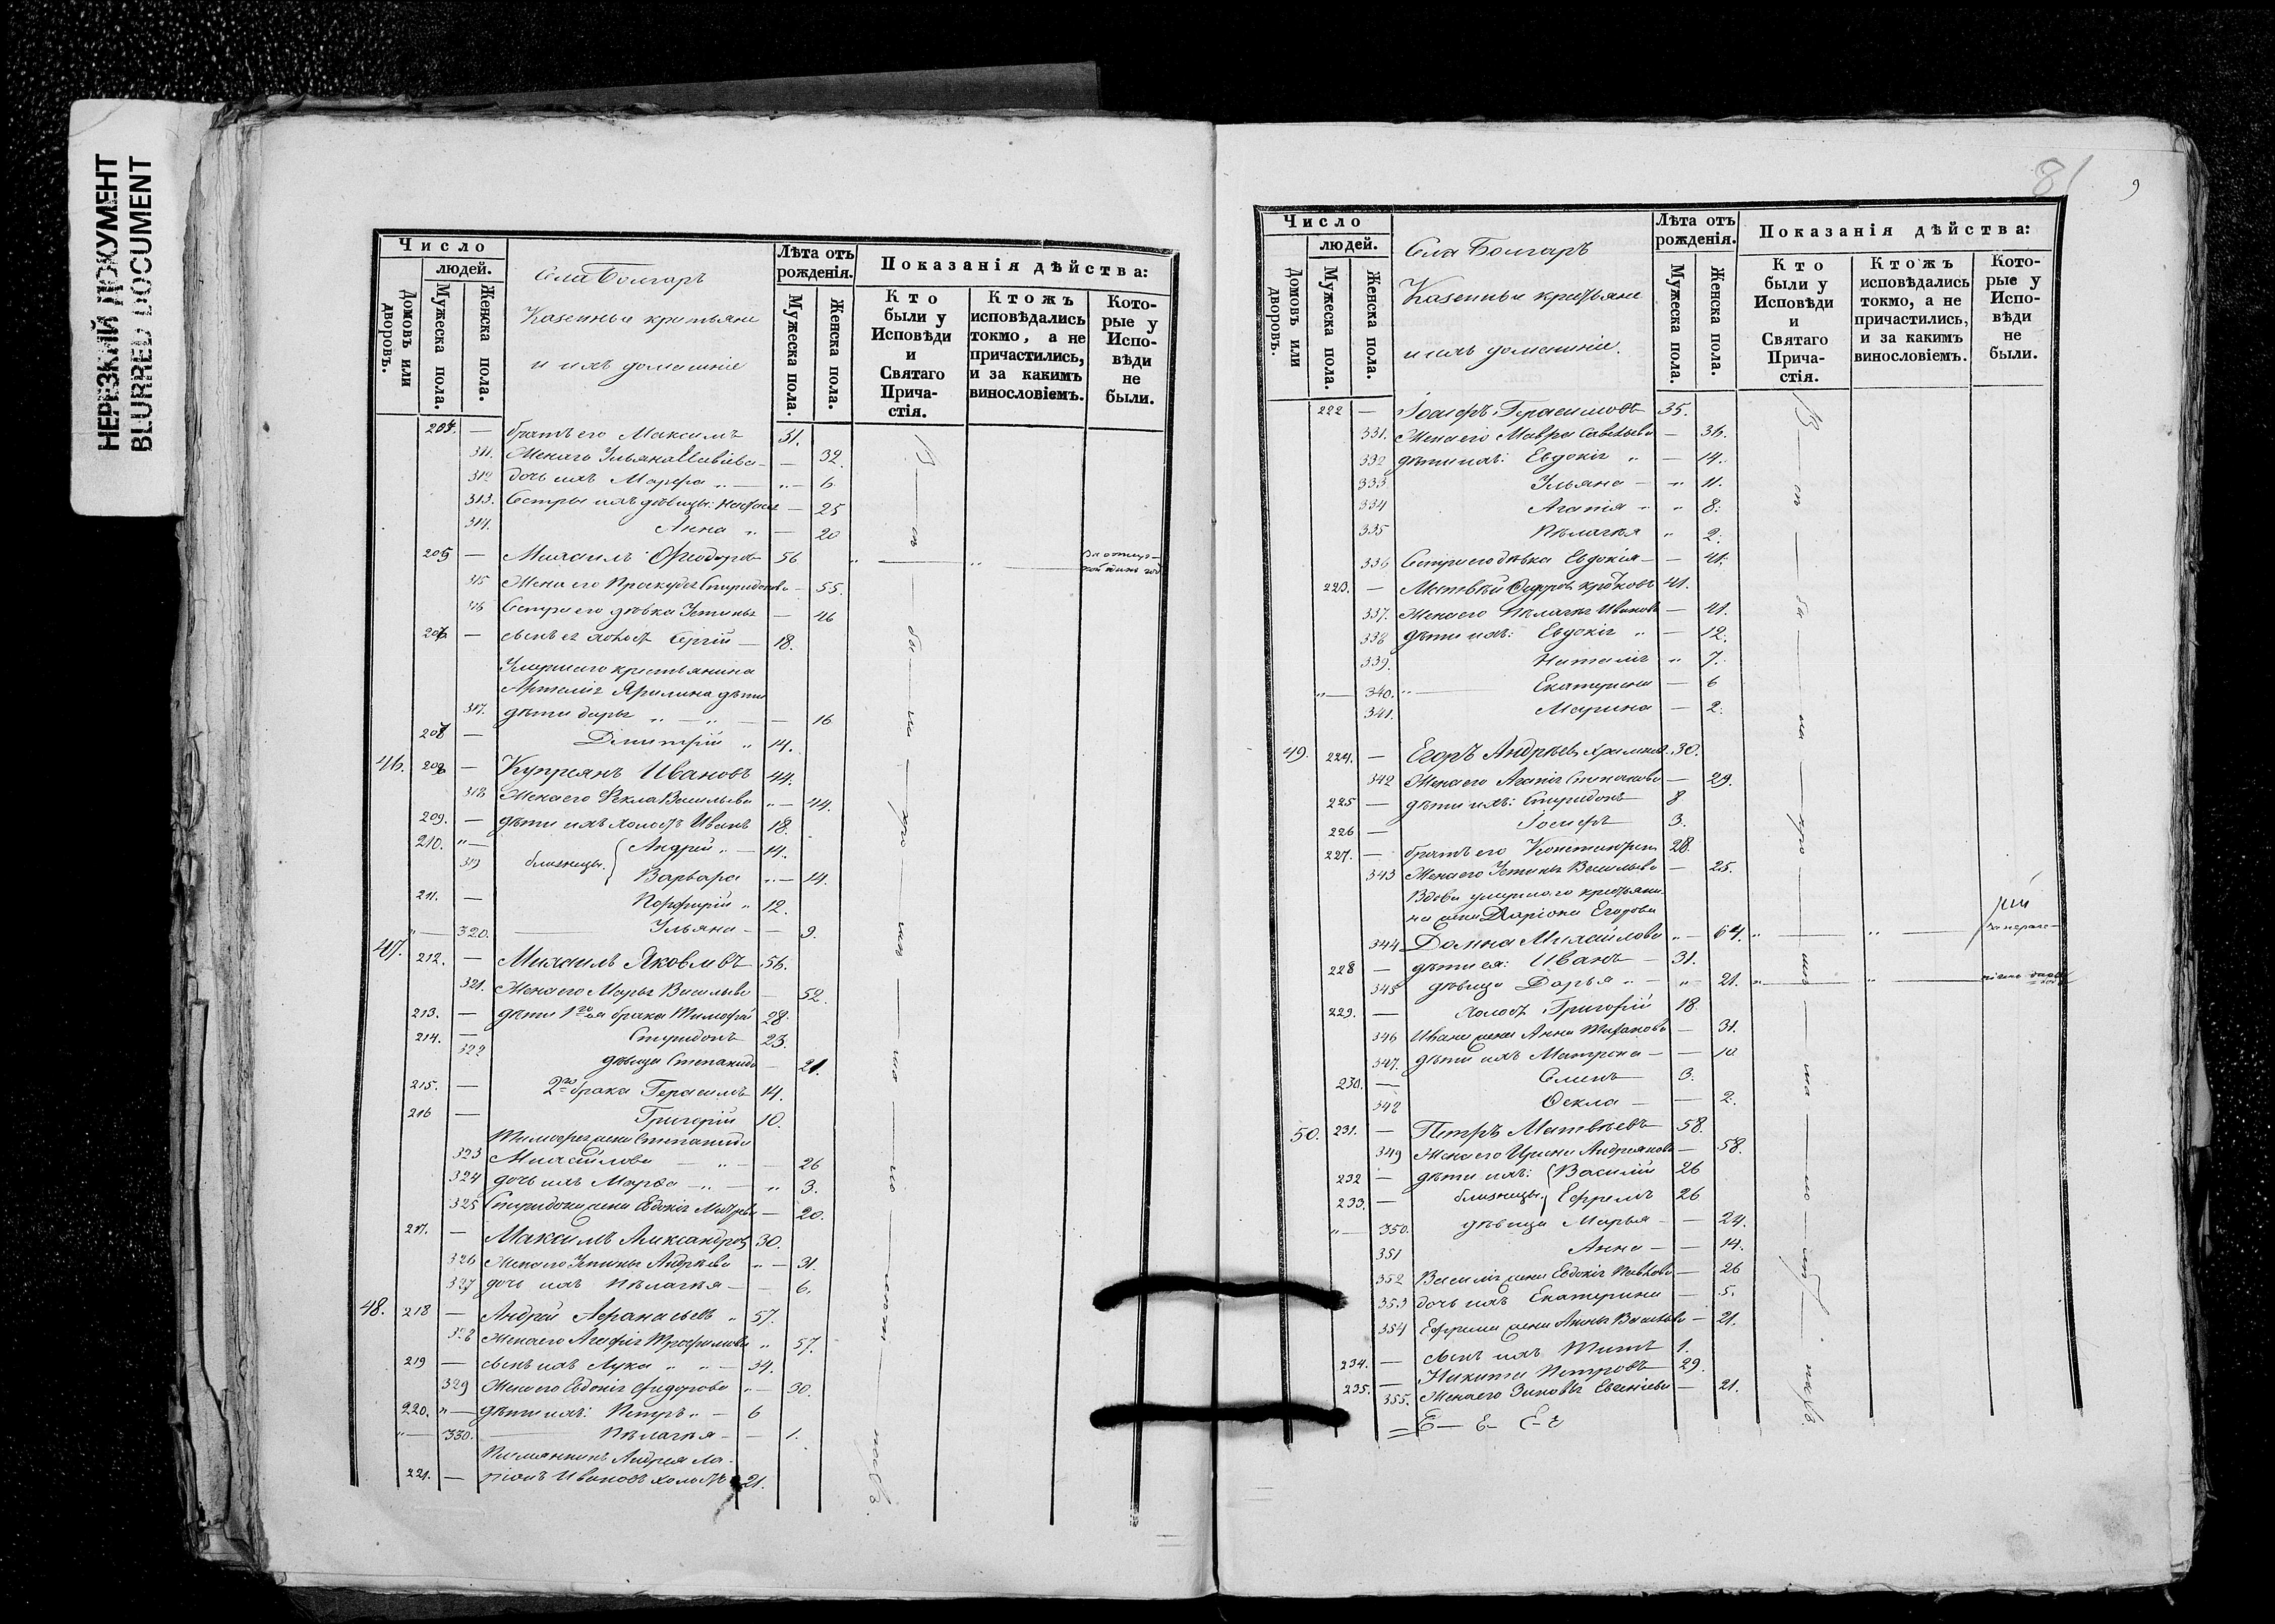 НЕРЕЗКИЙ ДОКУМЕНТ
BLURRED DOCUMENT
Число
людей.
Домовъ или дворовъ.
Мужеска пола.
Женска пола.
Села Болгаръ
Казенные крестьяне
и ихъ домашніе
Лѣта отъ рожденія.
Мужеска пола.
Женска пола.
Показанія дѣйства:
Кто были у Исповѣди и Святаго Причастія.
Ктожъ исповѣдались токмо, а не причастились, и за какимъ винословіемъ.
Которые у Исповѣди не были.
— братъ его Максимъ 31.
311. Жена его Ульяна — 32.
312 дочь ихъ Марѳа „ — „ — 6.
313. Сестры ихъ дѣвицы: — 25
314. Анна „ — 20
205 — Михаилъ Ѳеодоровъ 56
315 Жена его — 55.
316 Сестра его дѣвка Устинья — 46
206 — сынъ ея холостъ Сергій — 18.
Умершаго крестьянина
дѣти
317. дѣти Дарья „ — „ — 16
207 — Димитрій „ 14.
46. 208 — Купреянъ Ивановъ 44.
318 Жена его Ѳекла Васильева „ — 44.
209. — дѣти ихъ холостъ Иванъ 18.
210. „ — Андрей „ — 14.
319 близнецы. Варвара „ — 14.
211. — Порфирій „ 12.
„ — 320. Ульяна — — 9.
47. 212. — Михаилъ Яковлевъ 56.
321. Жена его Марья Васильева — 52.
213. — дѣти 1го брака Тимофей 28.
214. — Спиридонъ 23.
322 дѣвица Степанида — 21.
215. — 2го брака Герасимъ 14.
216 — Григорій 10.
Тимофея жена Степанида
323 Михайлова — „ — — 26
324 дочь ихъ Марѳа — „ — „ 3.
325 Спиридона жена Евдокія — 20.
217. — Максимъ Александровъ 30.
326 Жена его Устинья Андреева „ — 31.
327 дочь ихъ Пелагея — — 6.
48. 218 — Андрей Афанасьевъ „ 57.
328 Жена его Агафія Трофимова „ 57.
219 — сынъ ихъ Лука „ „ — 34.
329 Жена его Евдокія Федорова „ — 30.
220. „ — дѣти ихъ: Петръ „ — 6
„ — 330. Пелагея — — 1.
Племянникъ Андрея Ла-
221. — ріонъ Ивановъ холостъ 21.
81
9
Число
людей.
Домовъ или дворовъ.
Мужеска пола.
Женска пола.
Села Болгаръ
Казенные крестьяне
и ихъ домашніе.
Лѣта отъ рожденія.
Мужеска пола.
Женска пола.
Показанія дѣйства:
Кто были у Исповѣди и Святаго Причастія.
Ктожъ исповѣдались токмо, а не причастились, и за какимъ винословіемъ.
Которые у Исповѣди не были.
222 — Іосифъ Герасимовъ 35.
331. Жена его Мавра Савельева — 36.
332 дѣти ихъ: Евдокія „ — 14.
333 Ульяна — „ 11.
334 Агапія „ „ 8.
335 Пелагея „ 2.
336 Сестра его дѣвка Евдокія — — 41.
223. — Матвѣй Федоровъ 41.
337. Жена его Пелагея Иванова — 41.
338 дѣти ихъ: Евдокія „ — 12.
339. Наталія „ 7.
„ — 340. „ — Екатерина — 6
341. Марина — 2.
49. 224. — Егоръ Андреевъ 30.
342 Жена его Агапія Степанова — 29.
225 — дѣти ихъ: Спиридонъ 8
226 — Іосифъ 3.
227. — братъ его Константинъ 28.
343 Жена его Устинья Васильева — 25.
Вдова умершаго крестьяни-
на Ларіона Егорова
344 Домна Михайлова „ — 64. „ — „ —
228 — дѣти ея: Иванъ — 31.
345 дѣвица Дарья „ — „ — 21. „ — „ —
229. — холостъ Григорій 18.
346 Ивана жена Анна — 31.
347. дѣти ихъ Матрена — — 10
230. — Семенъ 3.
348 Ѳекла — — 2.
50. 231. — Петръ Матвѣевъ 58.
349 Жена его Ирина Андреянова — 58.
232 — дѣти ихъ: Василій 26
233. — близнецы. Ефремъ 26
„ — 350. дѣвица Марья — — 24.
351 Анна — — 14.
352 Василія жена Евдокія Павлова — 26
353 дочь ихъ Екатерина — 5.
354 Ефрема жена Анна Васильева — 21.
234. — сынъ ихъ Титъ 1.
235. — Никита Петровъ 29.
355. Жена его Зиновья — 21.